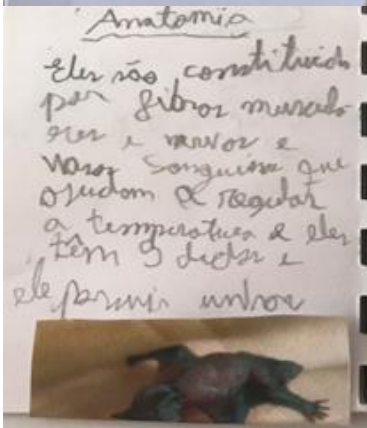 Anatomia
Eles são constituidos
por fibras muscula
res e nervos e
vasos sanguinios que
ajudam a regular
a temperatura e eles
têm 9 dedos e
ele possui unhas